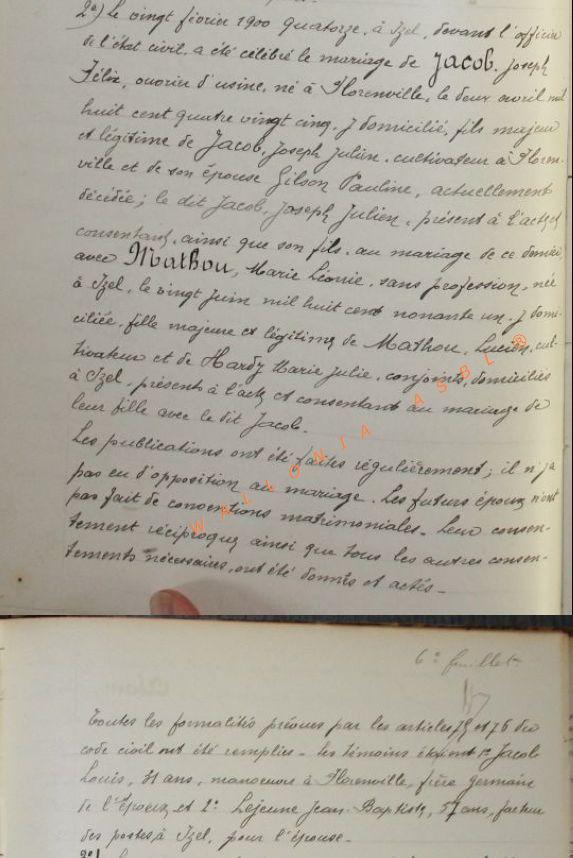 2º) Le vingt février 1900 quatorze, à Izel, devant l'officier
de l'état civil, a été célébré le mariage de Jacob, Joseph
Félix, ouvrier d'usine, né à Florenville, le deux avril mil
huit cent quatre vingt cinq, y domicilié, fils majeur
et légitime de Jacob, Joseph Julien, cultivateur à Floren-
ville et de son épouse Gilson Pauline, actuellement
décédée; le dit Jacob, Joseph Julien, présent à l'acte et
consentant, ainsi que son fils, au mariage de ce dernier,
avec Mathou, Marie Léonie, sans profession, née
à Izel, le vingt juin mil huit cent nonante un, y domi-
ciliée, fille majeure et légitime de Mathou, Lucien, cul-
tivateur et de Hardy Marie Julie, conjoints, domiciliés
à Izel, présents à l'acte et consentant au mariage de
leur fille avec le dit Jacob.
Les publications ont été faites régulièrement; il n'y a
pas eu d'opposition au mariage. Les futurs époux n'ont
pas fait de conventions matrimoniales. Leur consen-
tement réciproque ainsi que tous les autres consen-
tements nécessaires, ont été donnés et actés.
WALLONIA ASBL ®
6e feuillet
Toutes les formalités prévues par les articles 75 et 76 du
code civil ont été remplies. Les témoins étaient 1º Jacob
Louis, 31 ans, manoeuvre à Florenville, frère germain
de l'époux et 2º Lejeune Jean-Baptiste, 57 ans, facteur
des postes, à Izel, pour l'épouse.